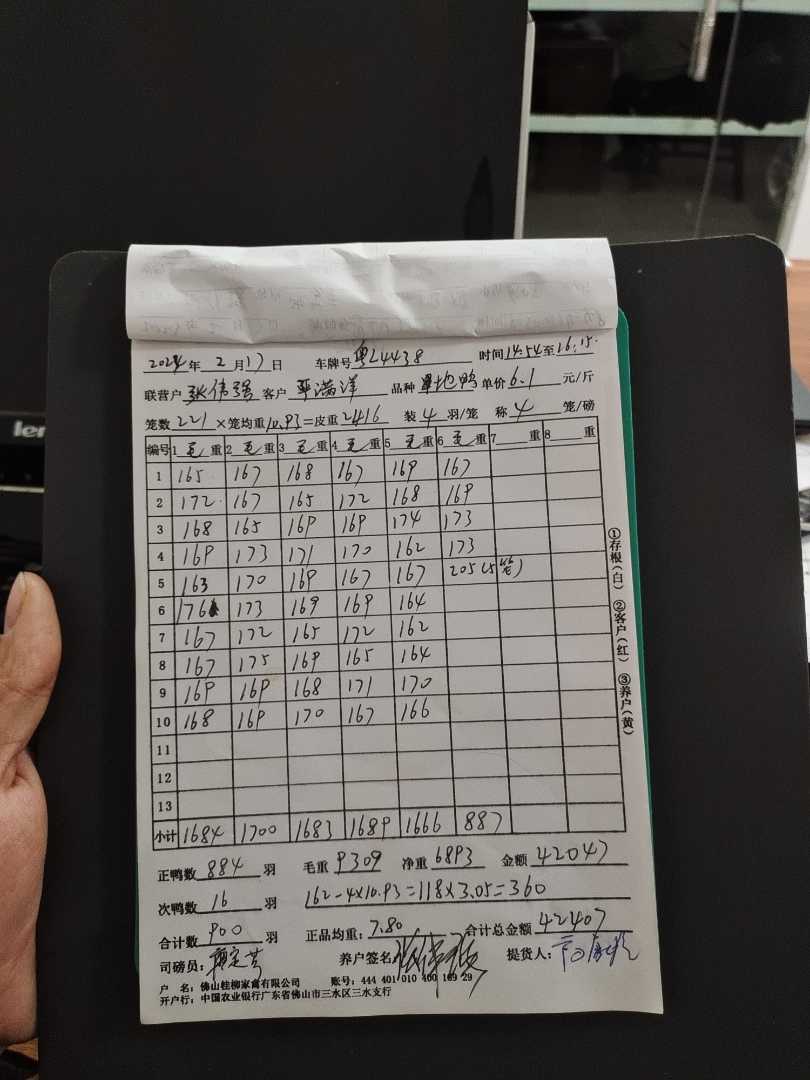 len
2024年 2月17日 车牌号 粤L4438 时间14:54至16:15
联营户 张伟强 客户 平满洋 品种 旱地鸭 单价6.1 元/斤
笼数221×笼均重10.93=皮重2416 装4羽/笼 称4笼/磅
编号 1毛重 2毛重 3毛重 4毛重 5毛重 6毛重 7 重 8 重
1 165 167 168 167 169 167
2 172 167 165 172 168 169
3 168 165 169 169 174 173
4 169 173 171 170 162 173
5 163 170 169 167 167 205(5笼)
6 176 173 169 169 164
7 167 172 165 172 162
8 167 175 169 165 164
9 169 169 168 171 170
10 168 169 170 167 166
11
12
13
小计 1684 1700 1683 1689 1666 887
正鸭数 884 羽 毛重 9309 净重 6893 金额 42047
次鸭数 16 羽 162-4×10.93=118×3.05=360
合计数 900 羽 正品均重: 7.80 合计总金额 42407
司磅员: 养户签名 张伟强 提货人:
户 名: 佛山桂柳家禽有限公司 账号: 444 401 010 400 169 29
开户行: 中国农业银行广东省佛山市三水区三水支行
①存根(白) ②客户(红) ③养户(黄)